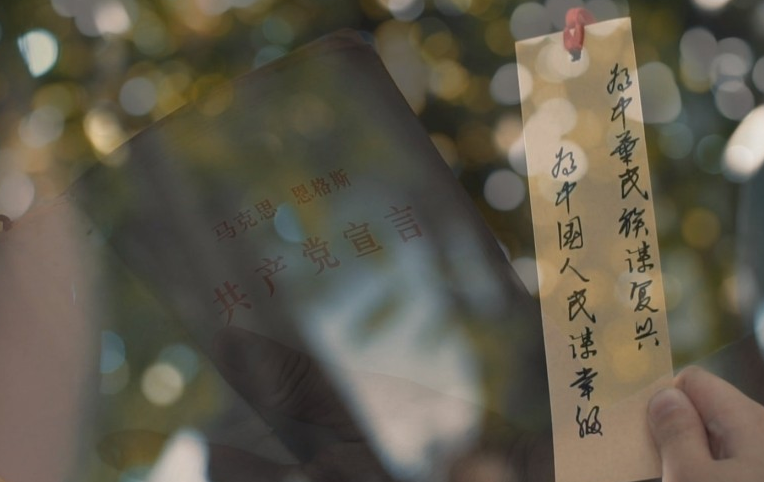 马克思 恩格斯
共产党宣言
为中華民族谋复兴
为中国人民谋幸福